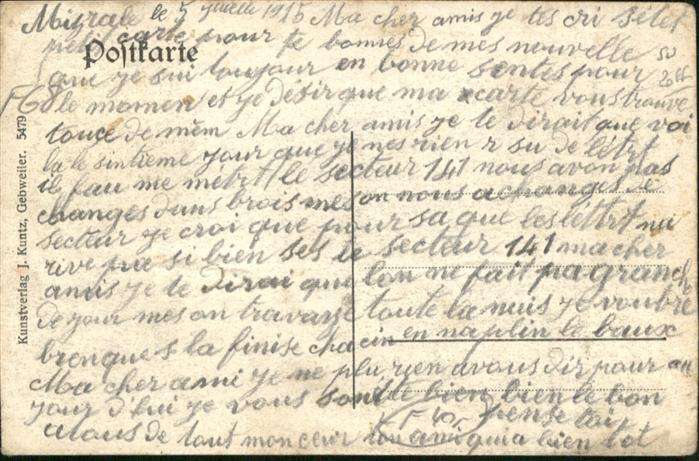 le 5 1915 Ma cher amis je tes cri se let
petit carte pour te bonnes de mes nouvelle
Postkarte
que je sui toujour en bonne sentes pour
le momen et je desir que ma carte vous trouve
de mêm Ma cher amis je te dirait que voi
la le sintieme jour que je nes rien r su de letrt
il fau me metrt le secteur 141 nous avon pas
changes dans trois mes on nous a changes
secteur je croi que pour sa que les letrt nu
rive pue si bien ses le secteur 141 ma cher
amis je te dirai que lon ne fait pa granch
de jour mes on travaye toute la nuis je
la finise chacin en na plin le
Ma cher ami je ne plu rien a vous dir pour au
jour d'hui je vous bien bien le bon
pense
de tout mon ceur ton ami qui a bien tot
Kunstverlag J. Kuntz, Gebweiler. 5479